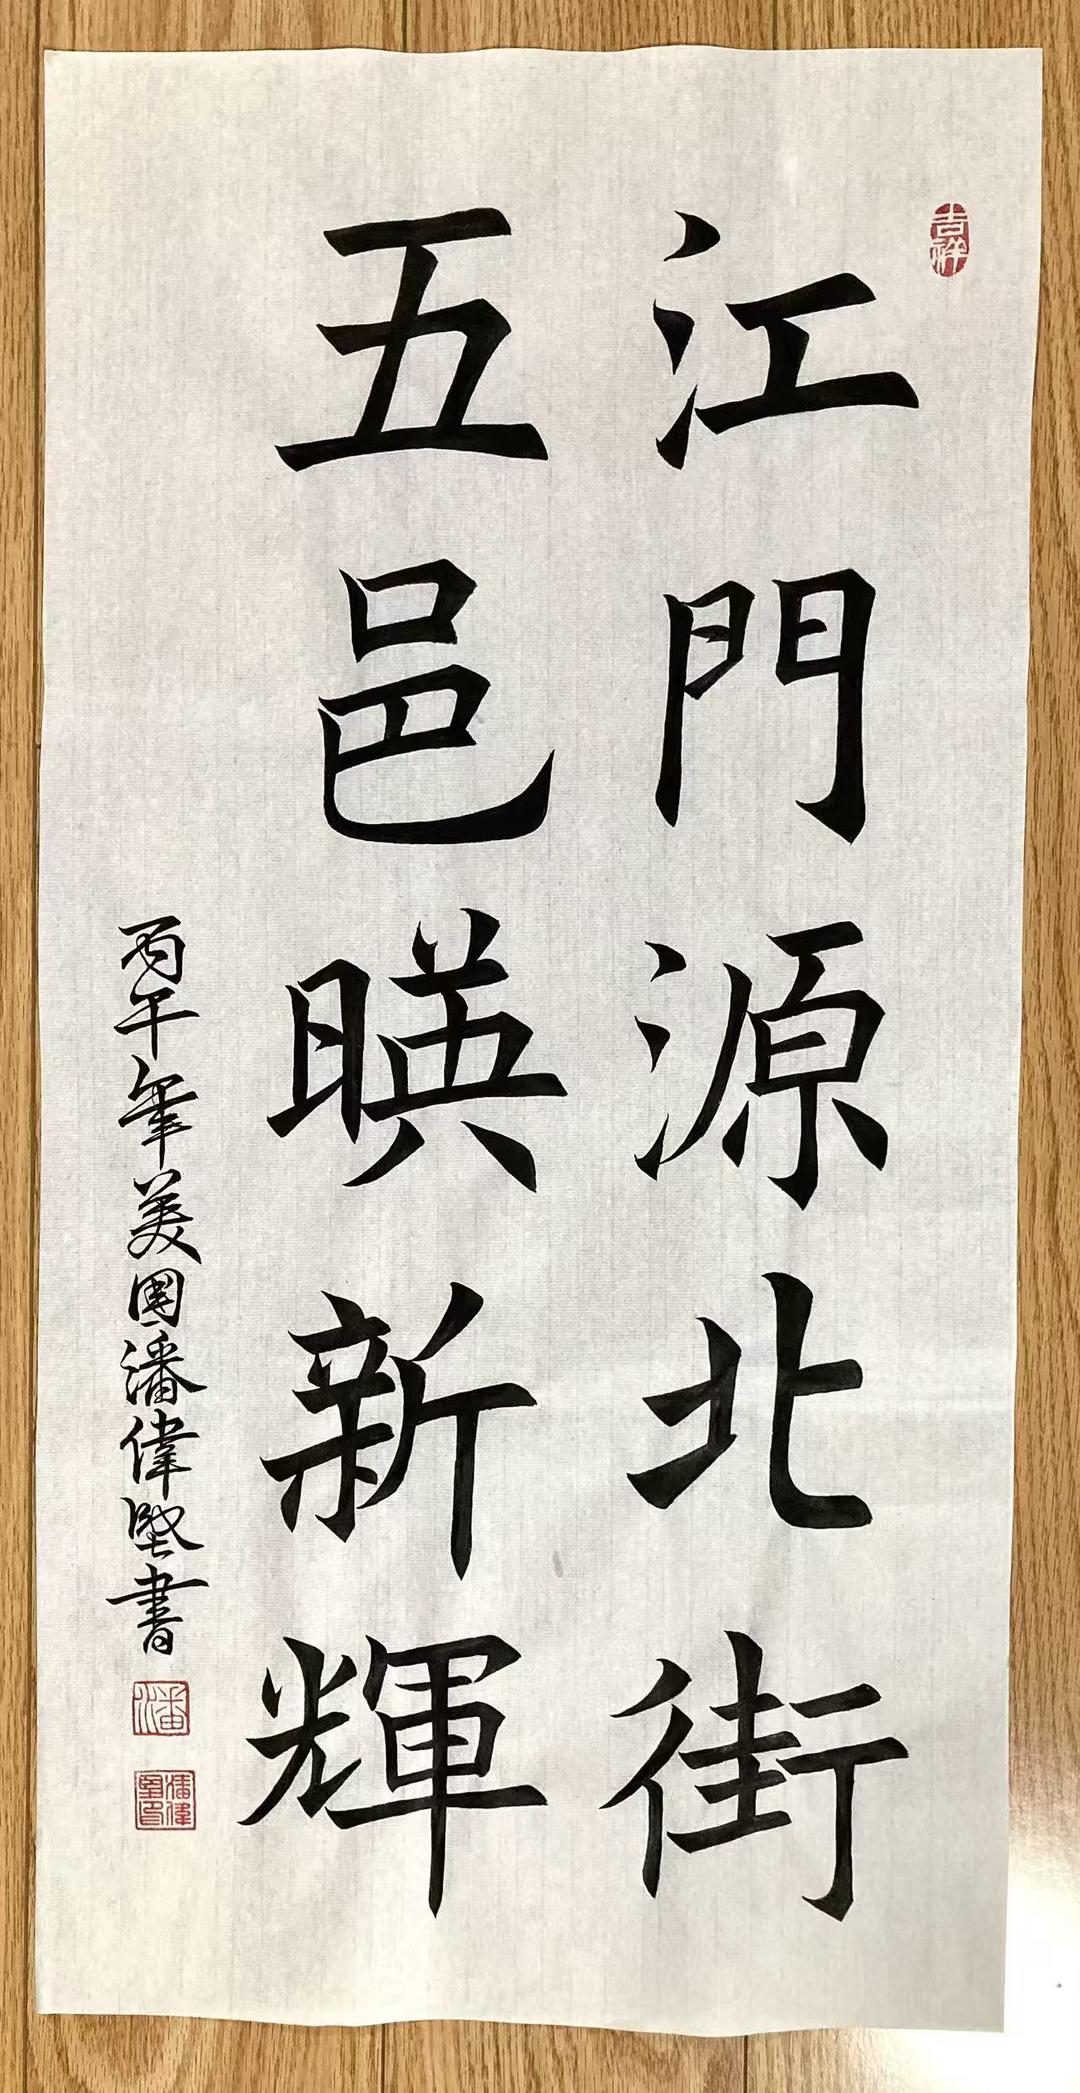 吉祥
江門源北街
五邑暎新輝
丙午年美國潘偉堅書
潘
潘偉堅印